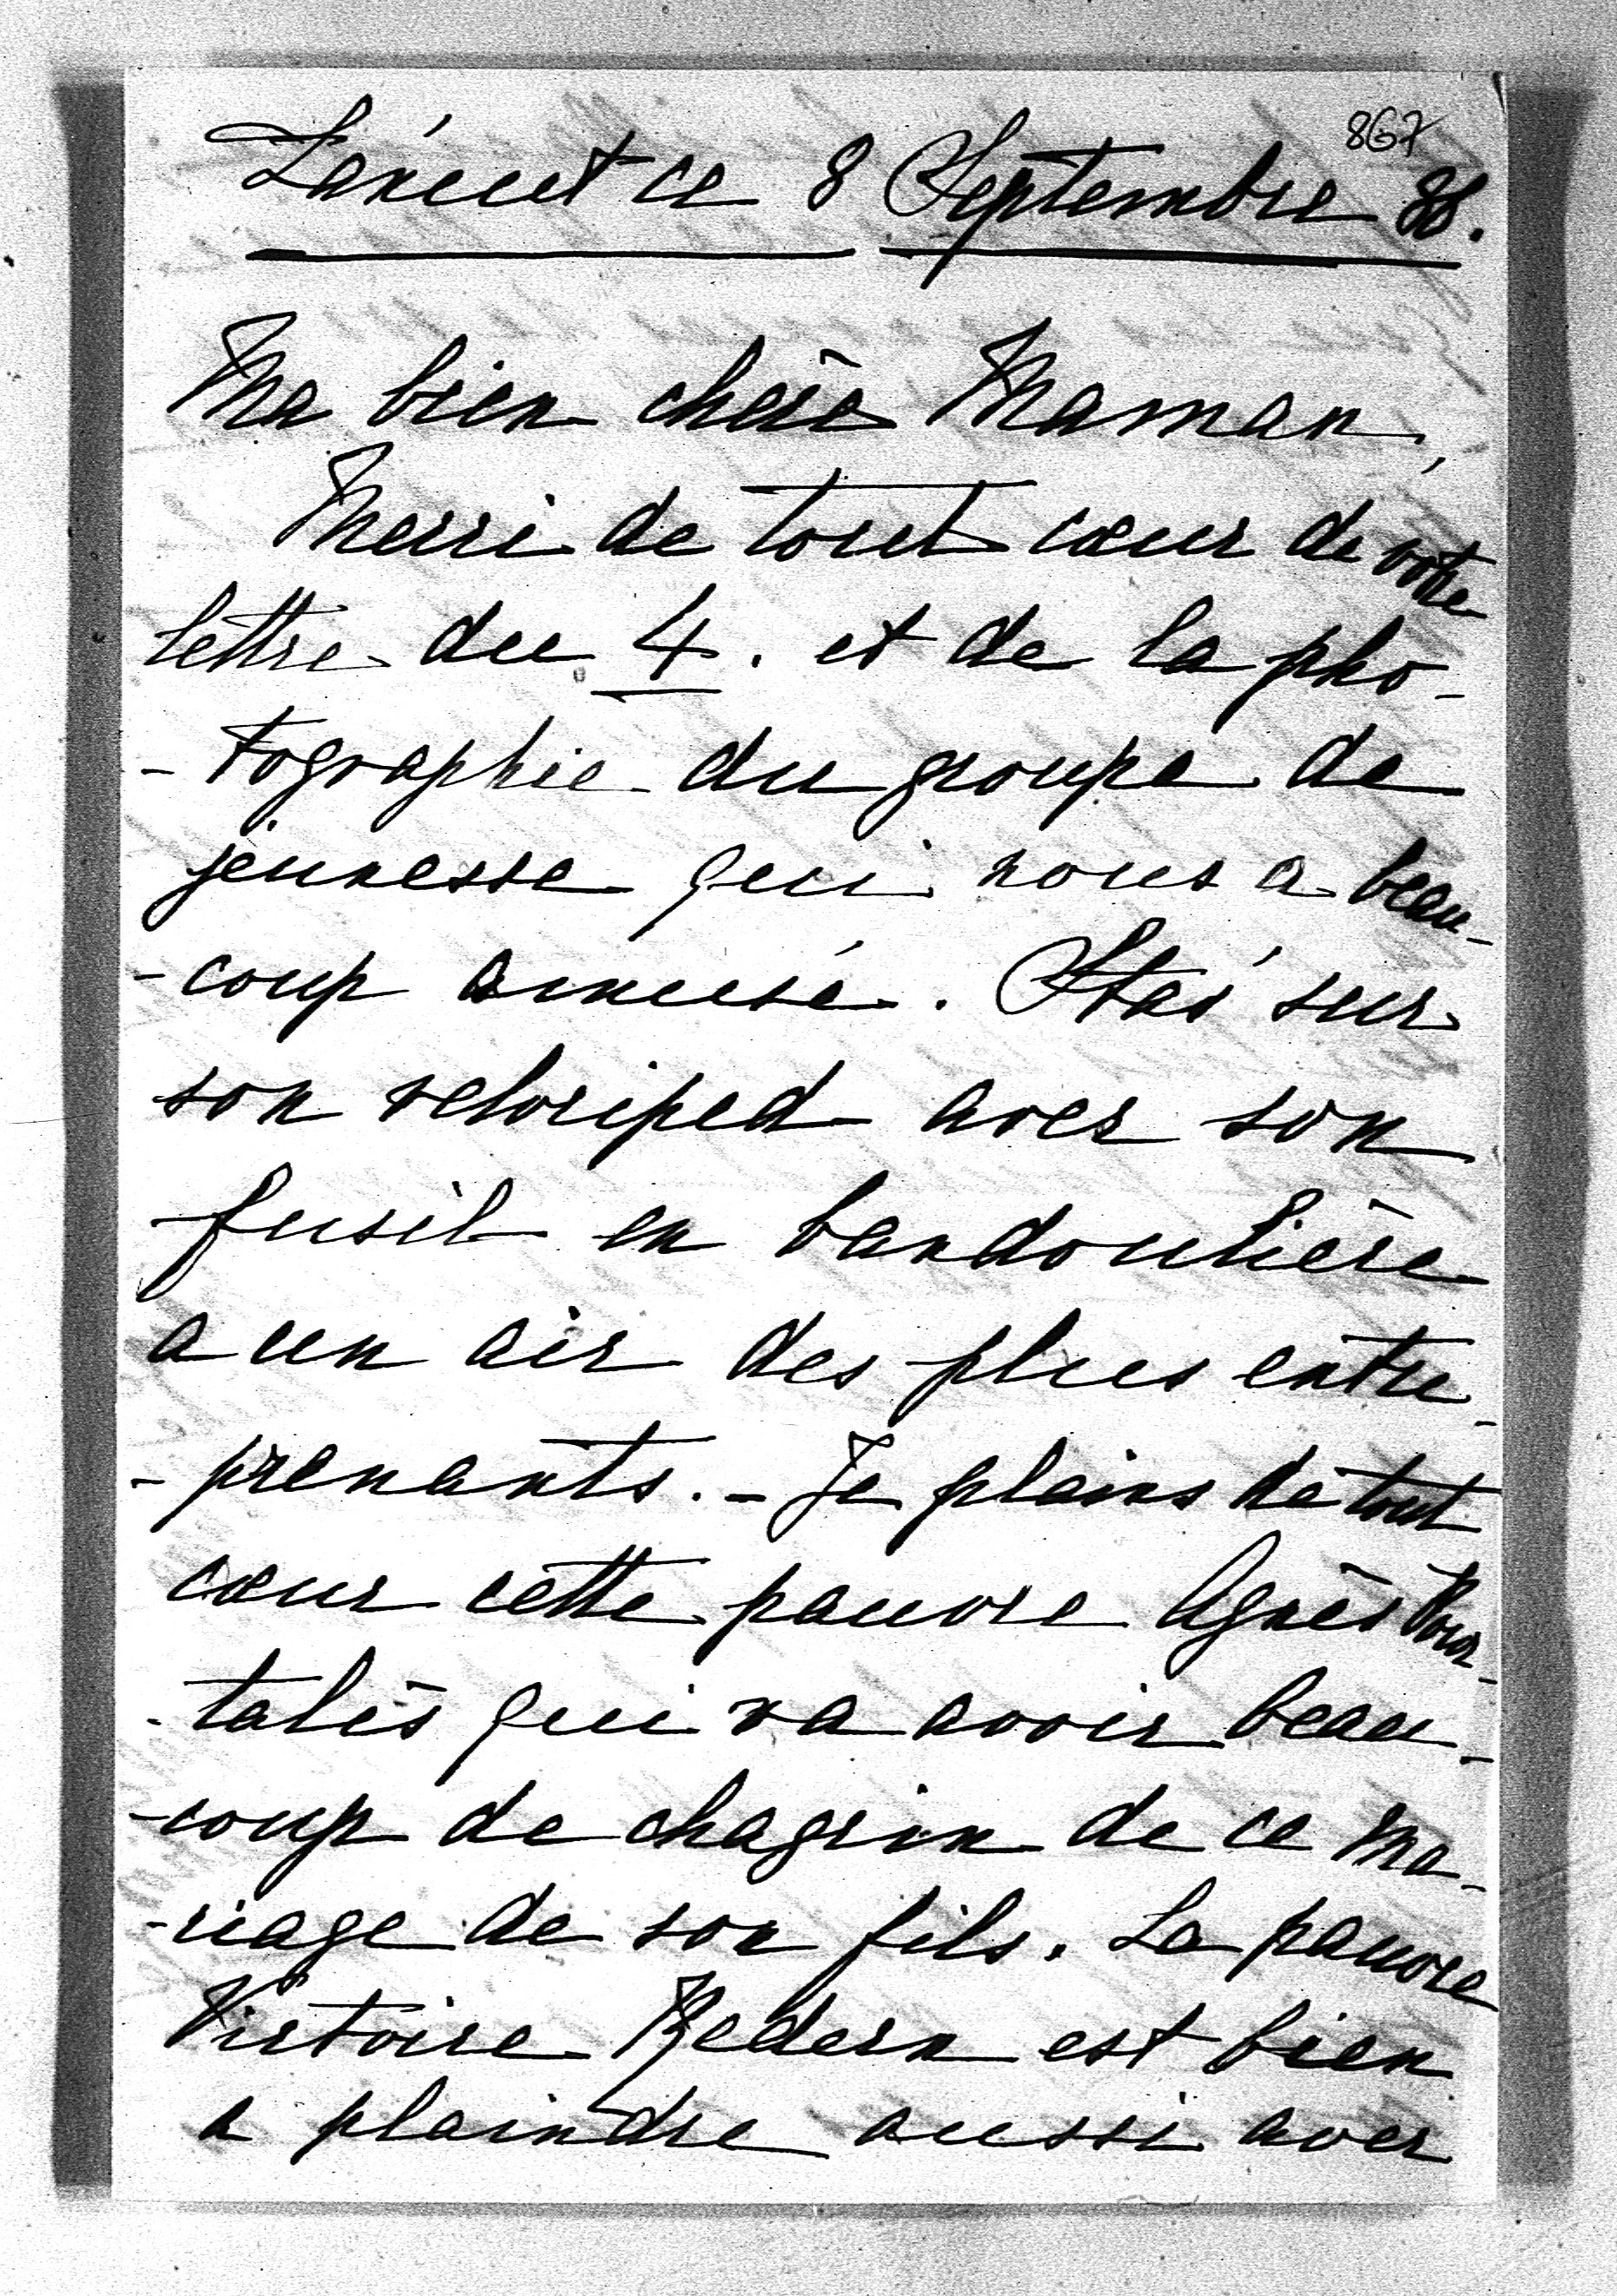 867
Lańcut ce 8 Septembre 88.
Ma bien chère Maman,
Merci de tout cœur de votre
lettre du 4. et de la pho-
-tographie du groupe de
jeunesse qui nous a beau-
-coup amusé. Staś sur
son velociped avec son
fusil en bandoulière
a un air des plus entre-
-prenants. - Je plains de tout
cœur cette pauvre Agnès Pour-
-talès qui va avoir beau-
-coup de chagrin de ce ma-
-riage de son fils. La pauvre
Victoire Redern est bien
a plaindre aussi avec